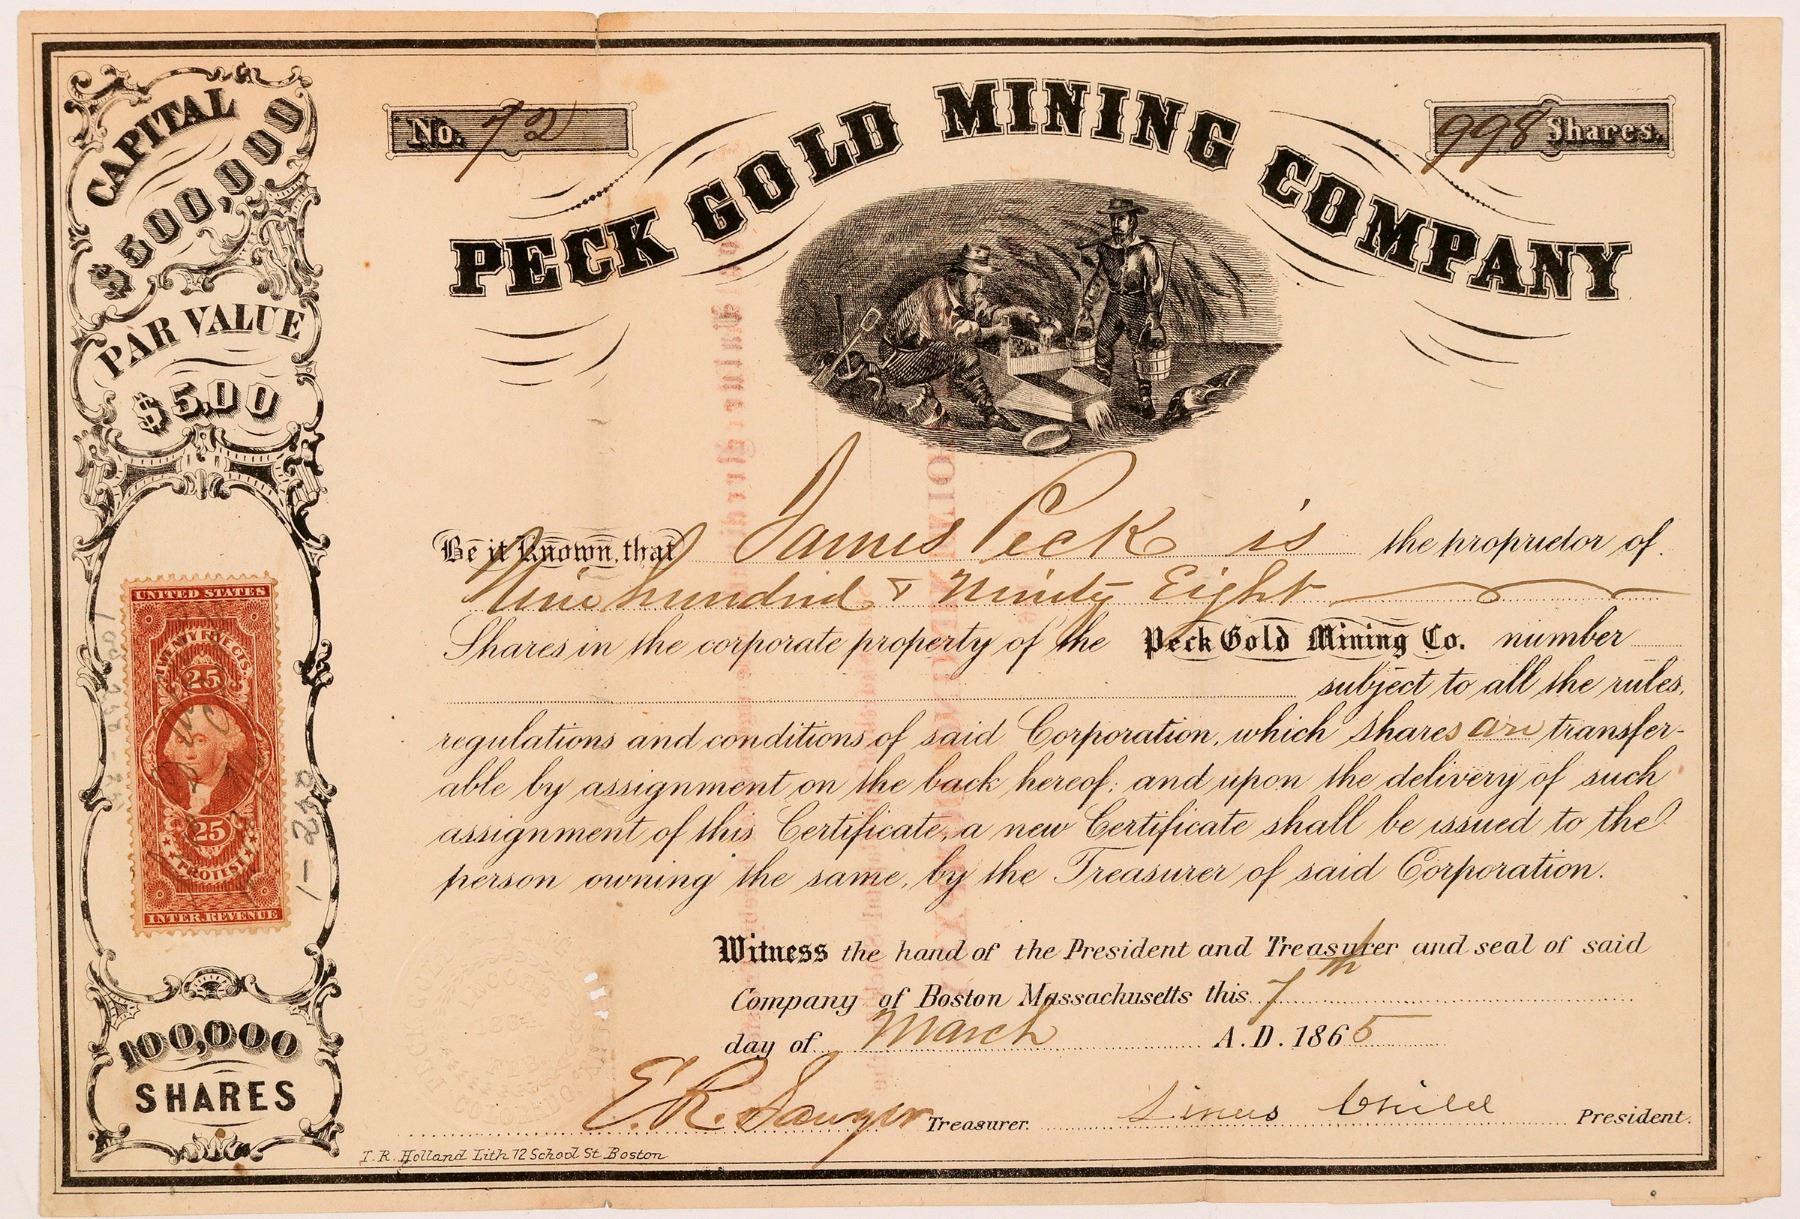 CAPITAL
$500,000
PAR VALUE
$5,00
No. 72
998 Shares.
PECK GOLD MINING COMPANY
Be it Known, that James Peck is the proprietor of
Nine hundred & Ninety Eight
Shares in the corporate property of the Peck Gold Mining Co. number
subject to all the rules,
regulations and conditions of said Corporation, which shares are transfer-
able by assignment on the back hereof; and upon the delivery of such
assignment of this Certificate, a new Certificate shall be issued to the
person owning the same, by the Treasurer of said Corporation.
Witness the hand of the President and Treasurer and seal of said
Company of Boston Massachusetts this 7th
day of March A.D. 1865
E. R. Sawyer Treasurer.
Linus Child President.
UNITED STATES
TWENTY FIVE CTS.
25
25
PROTEST
INTER. REVENUE
1-238
100,000
SHARES
T. R. Holland Lith 72 School St Boston